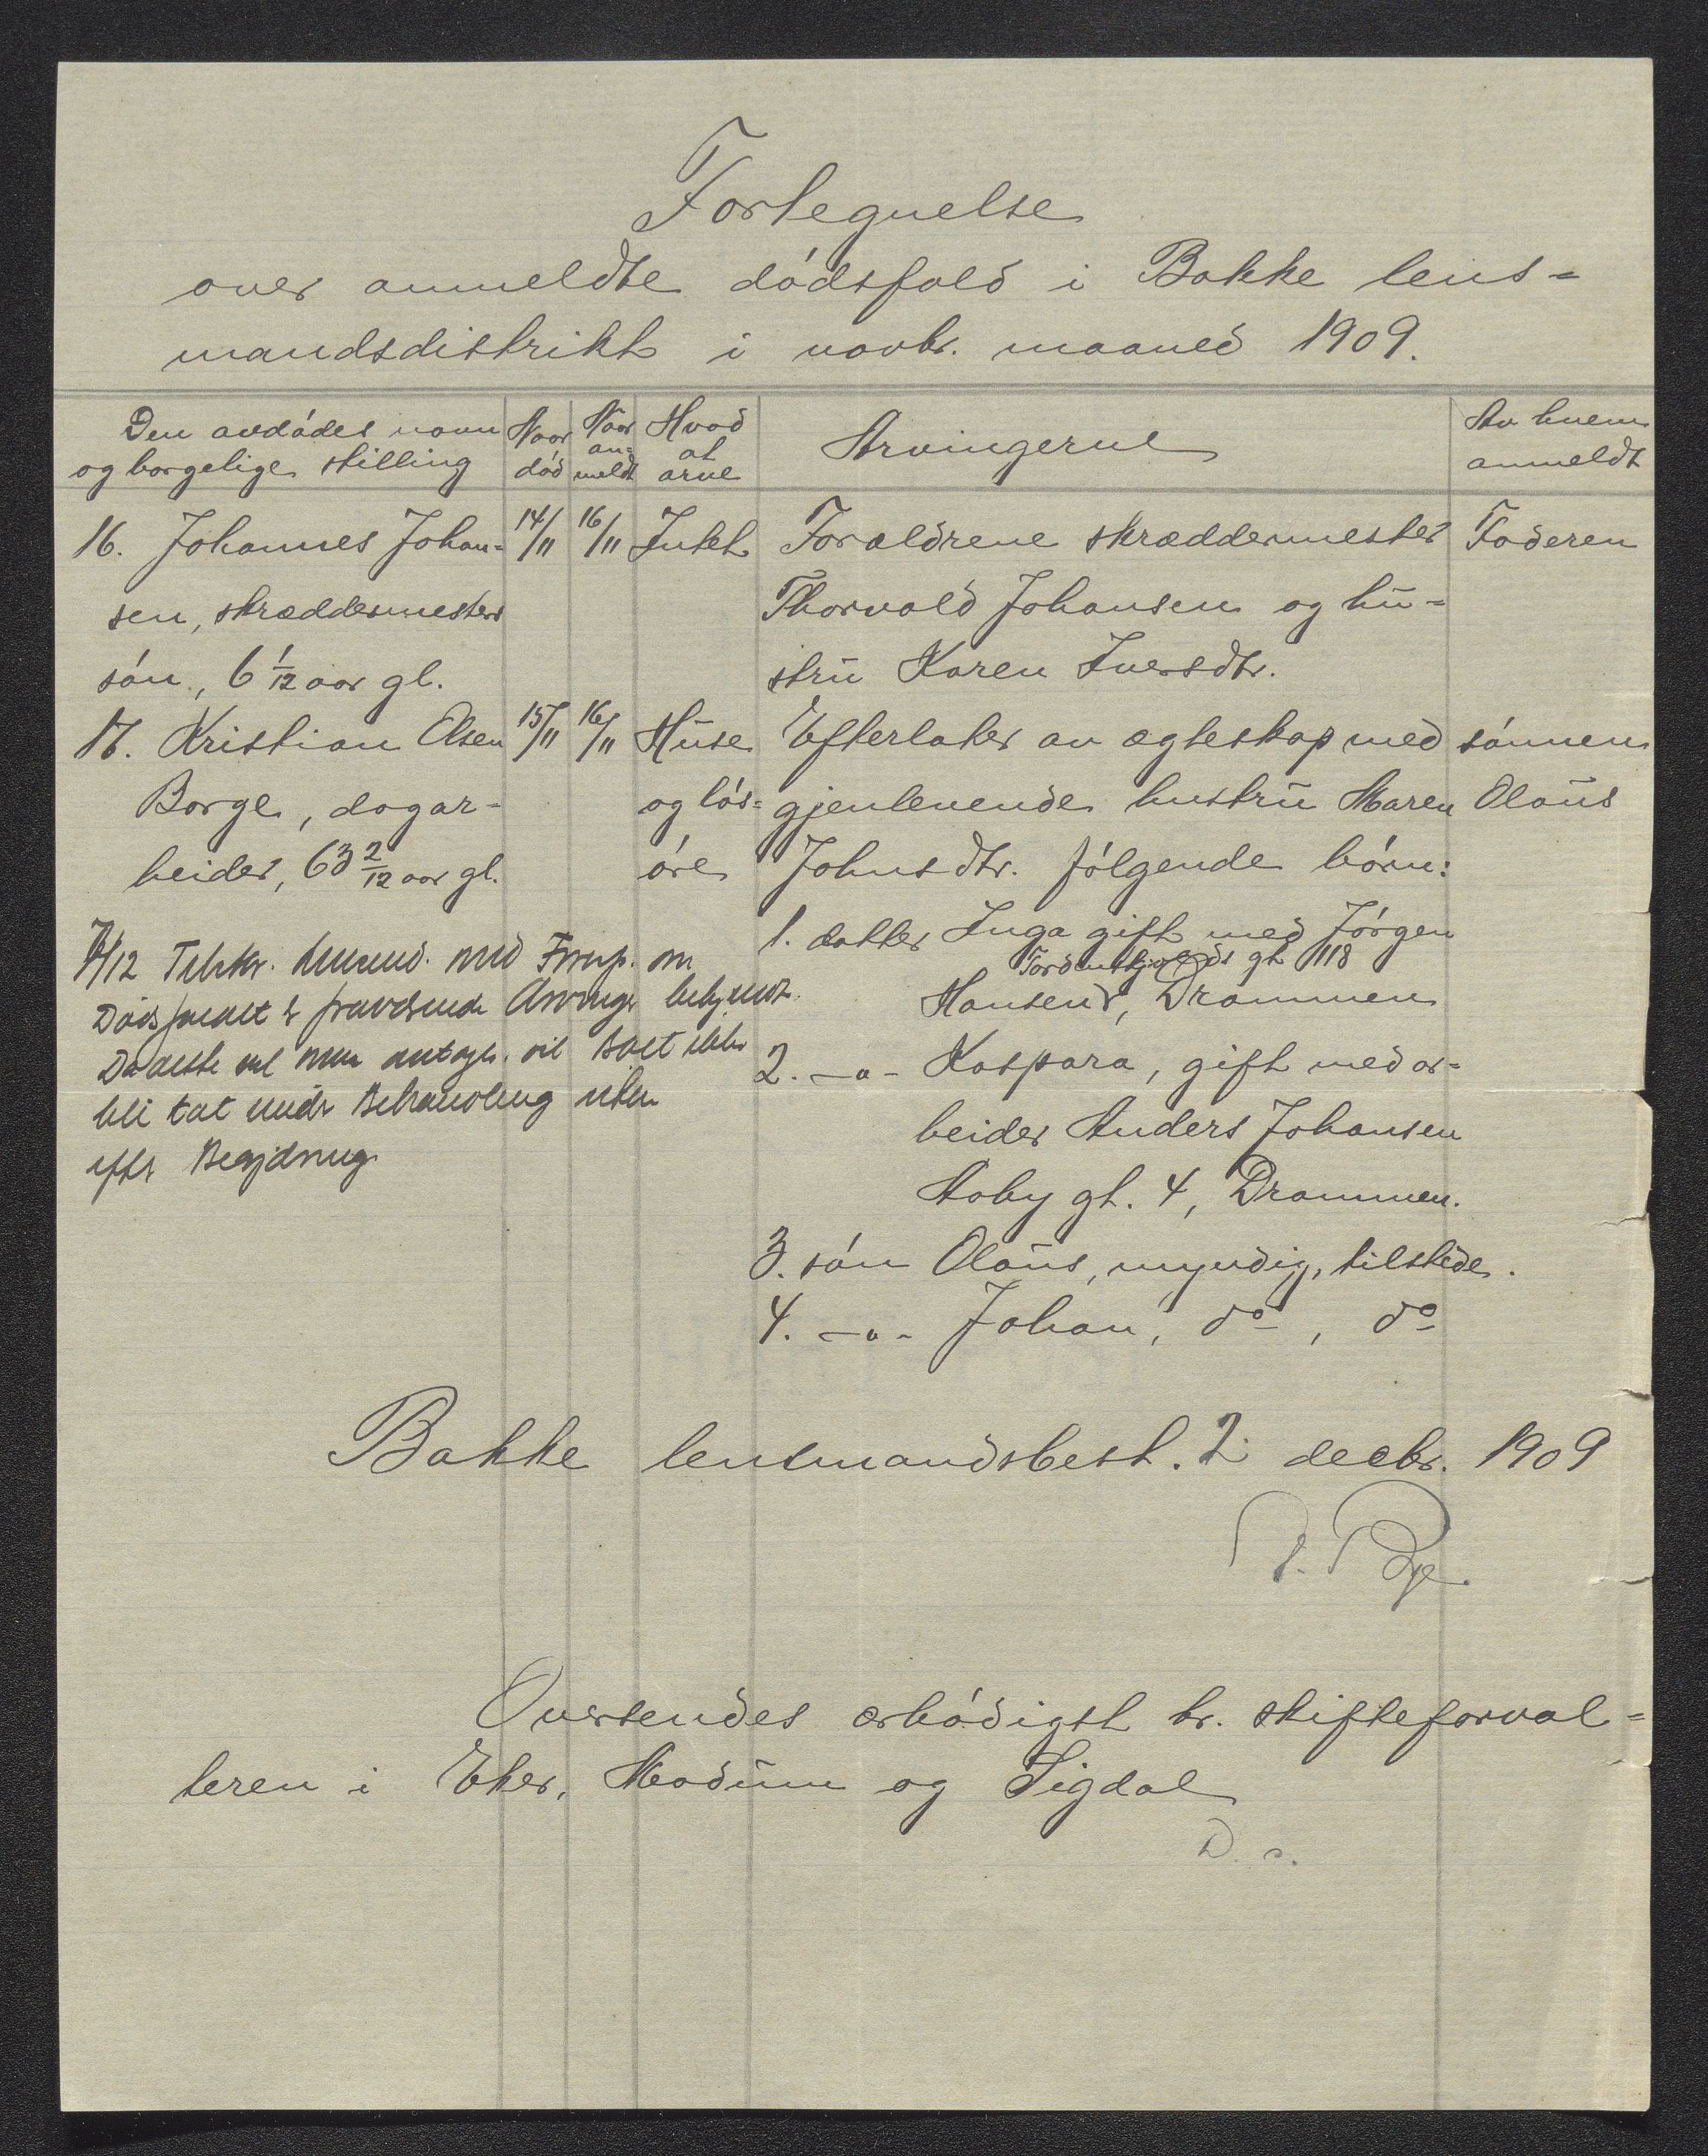 Fortegnelse
over anmeldte dødsfald i Bakke lens=
mandsdistrikt i novbr. maaned 1909.
Den avdødes navn og borgelige stilling
Naar død
Naar an= meldt
Hvad at arve
Arvingerne
Av hvem anmeldt
16. Johannes Johan= 14/11 16/11 Intet Forældrene skræddermester Faderen
sen, skræddermesters Thorvald Johansen og hu=
søn, 6 1/12 aar gl. stru Karen Iversdtr.
17. Kristian Olsen 15/11 16/11 Huse Efterlater av ægteskap med sønnen
Borge, dagar= og løs= gjenlevende hustru Maren Olaus
beider, 63 2/12 aar gl. øre Johnsdtr. følgende børn:
1. datter Inga gift med Jørgen
Tordenskjolds gt 118
Hansen, Drammen
2. -o- Kaspara, gift med ar=
beider Anders Johansen
Aaby gt. 4, Drammen.
3. søn Olaus, myndig, tilstede.
4. -o- Johan, do , do
/12 med Foresp. om
Dødsfaldet & fraværende Arvinger
Da dette vil man antagl. vil Boet ikke
bli tat under Behandling uten
efter Begjæring
Bakke lensmandsbest. 2 decbr. 1909
Oversendes ærbødigst hr. skifteforval=
teren i Eker, Modum og Sigdal
D. s.